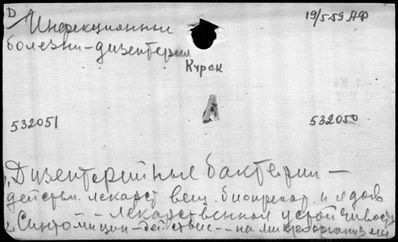 D
19/5-59 АФ
Инфекционные
болезни - дизентерия
Курск
А
532051
532050
1, Дизентерийные бактерии -
действ. лекарст вещ. биопрепар. и ядов
" - - лекарственная устойчивость
2, Синтомицин - действие - - на микроорганизмы